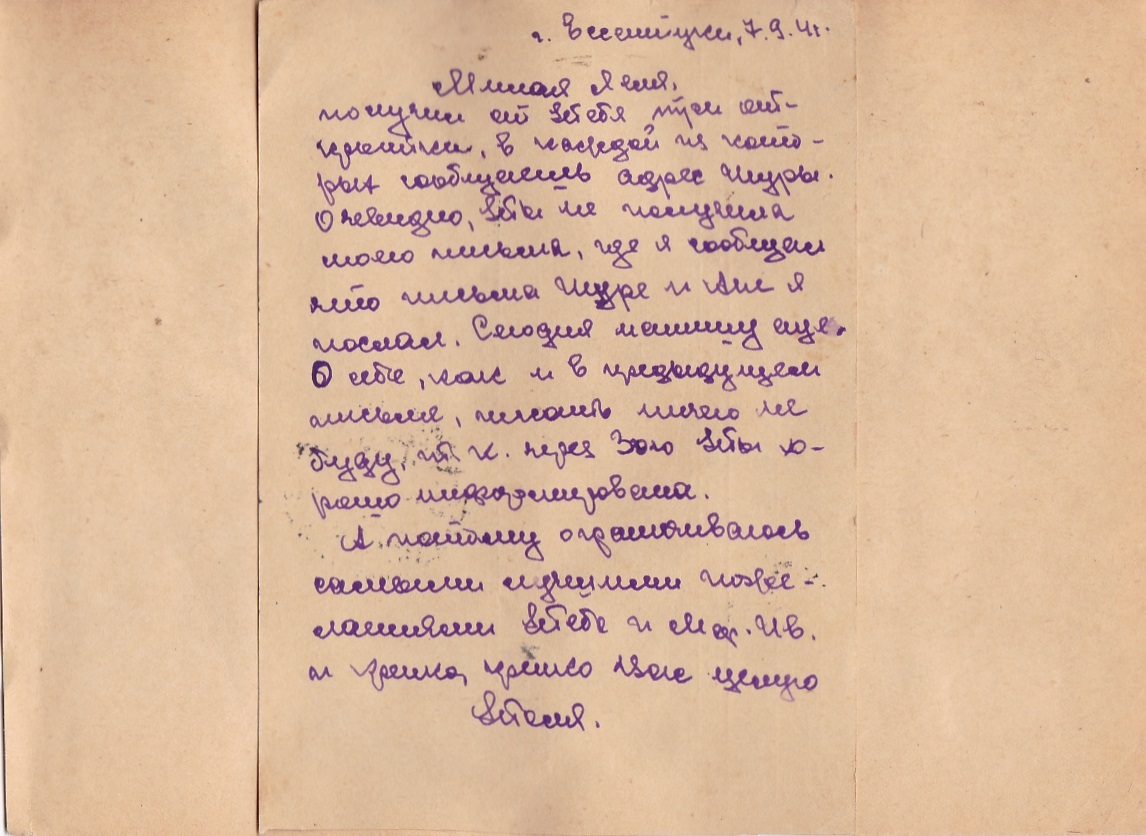 г. Ессентуки, 7.9.41.
Милая Леля,
получил от Тебя три от-
крытки, в каждой из кото-
рых сообщаешь адрес Шуры.
Очевидно, Ты не получила
моего письма, где я сообщал
что письма Шуре и Ане я
послал. Сегодня напишу еще.
О себе, как и в предыдущем
письме, писать ничего не
буду, т. к. через Зою Ты хо-
рошо информирована.
А поэтому ограничиваюсь
самыми лучшими поже-
ланиями Тебе и Мар. Ив.
и крепко, крепко Вас целую